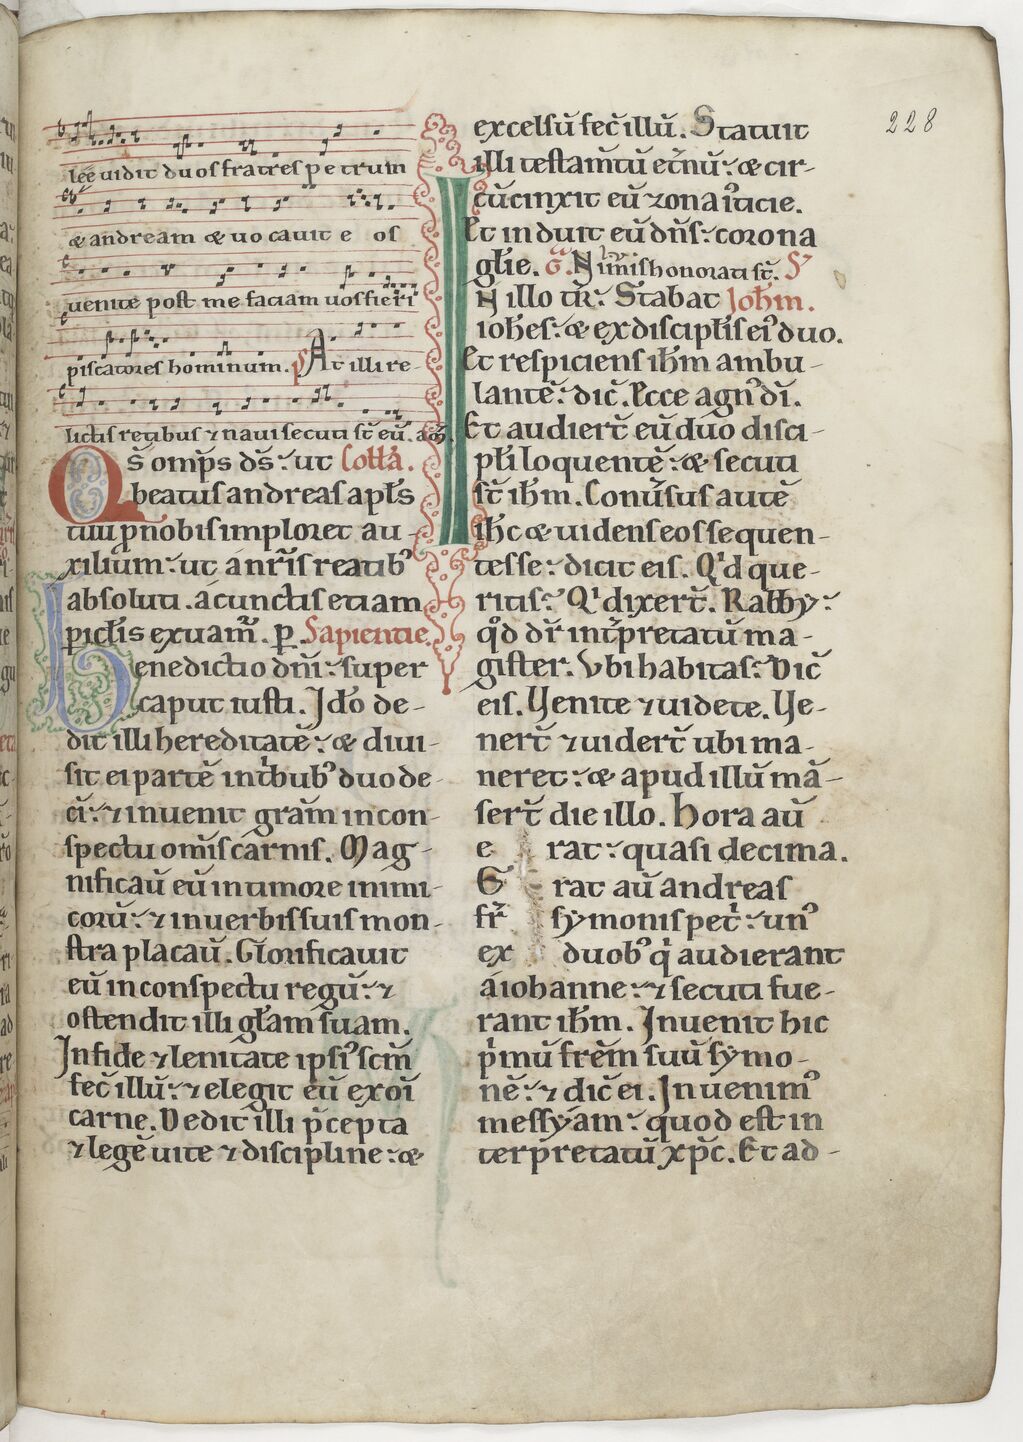 leę uidit duos fratres petrum
& andream & uocauit eos
uenite post me faciam uos fieri
piscatores hominum. ps At illi re-
lictis retibus ⁊ naui secuti st̄ eū.
Qs̄ omp̄s ds̄: ut Collā.
beatus andreas apl̄s
tuus p nobis imploret au-
xilium: ut a nr̄is reatibꝰ
absoluti. a cunctis etiam
pericl̄is exuam̄. p. Sapientie.
Benedictio dn̄i: super
caput iusti. Ido de-
dit illi hereditatē: & diui-
sit ei partē in tⁱbubꝰ duode-
cī: ⁊ inuenit grām in con-
spectu om̄is carnis. Mag-
nificaū eū in timore inimi-
corū: ⁊ in uerbis suis mon-
stra placaū. Glorificauit
eū in conspectu regū: ⁊
ostendit illi gl̄am suam.
In fide ⁊ lenitate ipsiꝰ scm̄
fec̄ illū: ⁊ elegit eū ex oī
carne. Dedit illi p̄cepta
⁊ legē uite ⁊ discipline: &
excelsū fec̄ illū. Statuit
illi testam̄tū et̄nū: & cir-
cūcinxit eū zona iᵒticie.
Et induit eū dn̄s: corona
gl̄ie. G̃. Nimis honorati st̄. S
IN illo tr̄: Stabat Joħm.
ioħes: & ex discipl̄is eiꝰ duo.
Et respiciens iħm ambu-
lantē: dic̄. Ecce agnꝰ dī.
Et audiert̄ eū duo disci-
pl̄i loquentē: & secuti
st̄ iħm. Conūsus autē
iħc & uidens eos sequen-
tes se: dicit eis. Qⁱd que-
ritis? Qⁱ dixert̄. Rabby:
qd̄ dr̄ int̄pretatū ma-
gister: Vbi habitas? Dic̄
eis. Venite ⁊ uidete. Ve-
nert̄ ⁊ uidert̄ ubi ma-
neret: & apud illū mā-
sert̄ die illo. Hora aū
e rat: quasi decima.
E rat aū andreas
fr̄ symonis petⁱ: unꝰ
ex duobꝰ qⁱ audierant
a iohanne: ⁊ secuti fue-
rant iħm. Inuenit hic
pⁱmū frēm suū symo-
nē: ⁊ dic̄ ei. Inuenimꝰ
messyam: quod est in
terpretatū xpc̄. Et ad-
228